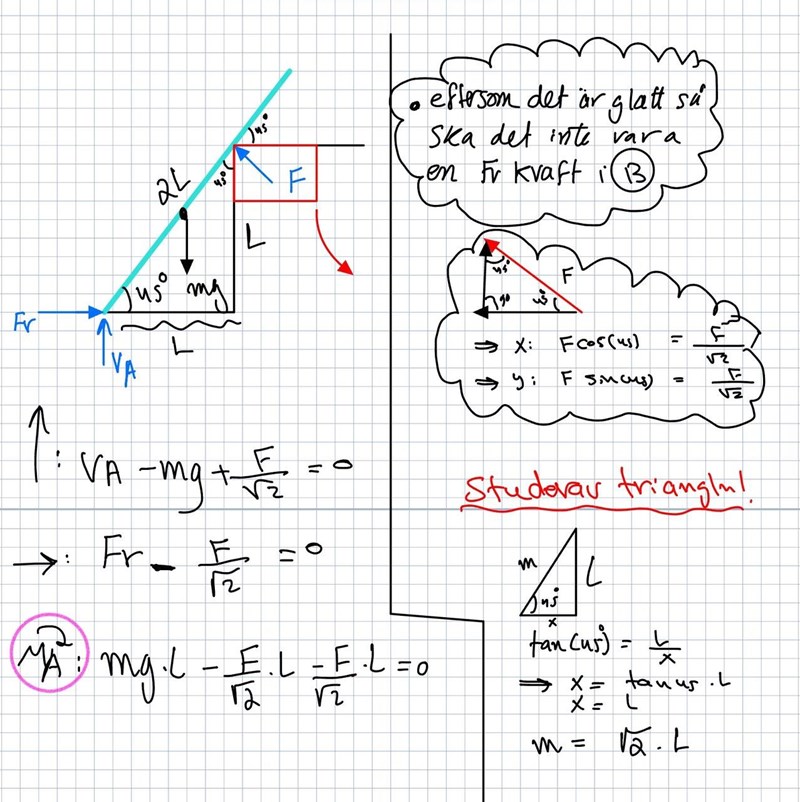 45°
45°
F
2L
L
45°
mg
Fr
L
VA
↑: VA - mg + F/√2 = 0
→: Fr - F/√2 = 0
MA: mg·L - F/√2·L - F/√2·L = 0
• eftersom det är glatt så
ska det inte vara
en Fr kraft i B
45°
F
90
45°
⇒ x: Fcos(45) = F/√2
⇒ y: F sin(45) = F/√2
Studerar triangln!
m
L
45°
x
tan(45°) = L/x
⇒ x = tan45·L
x = L
m = √2·L